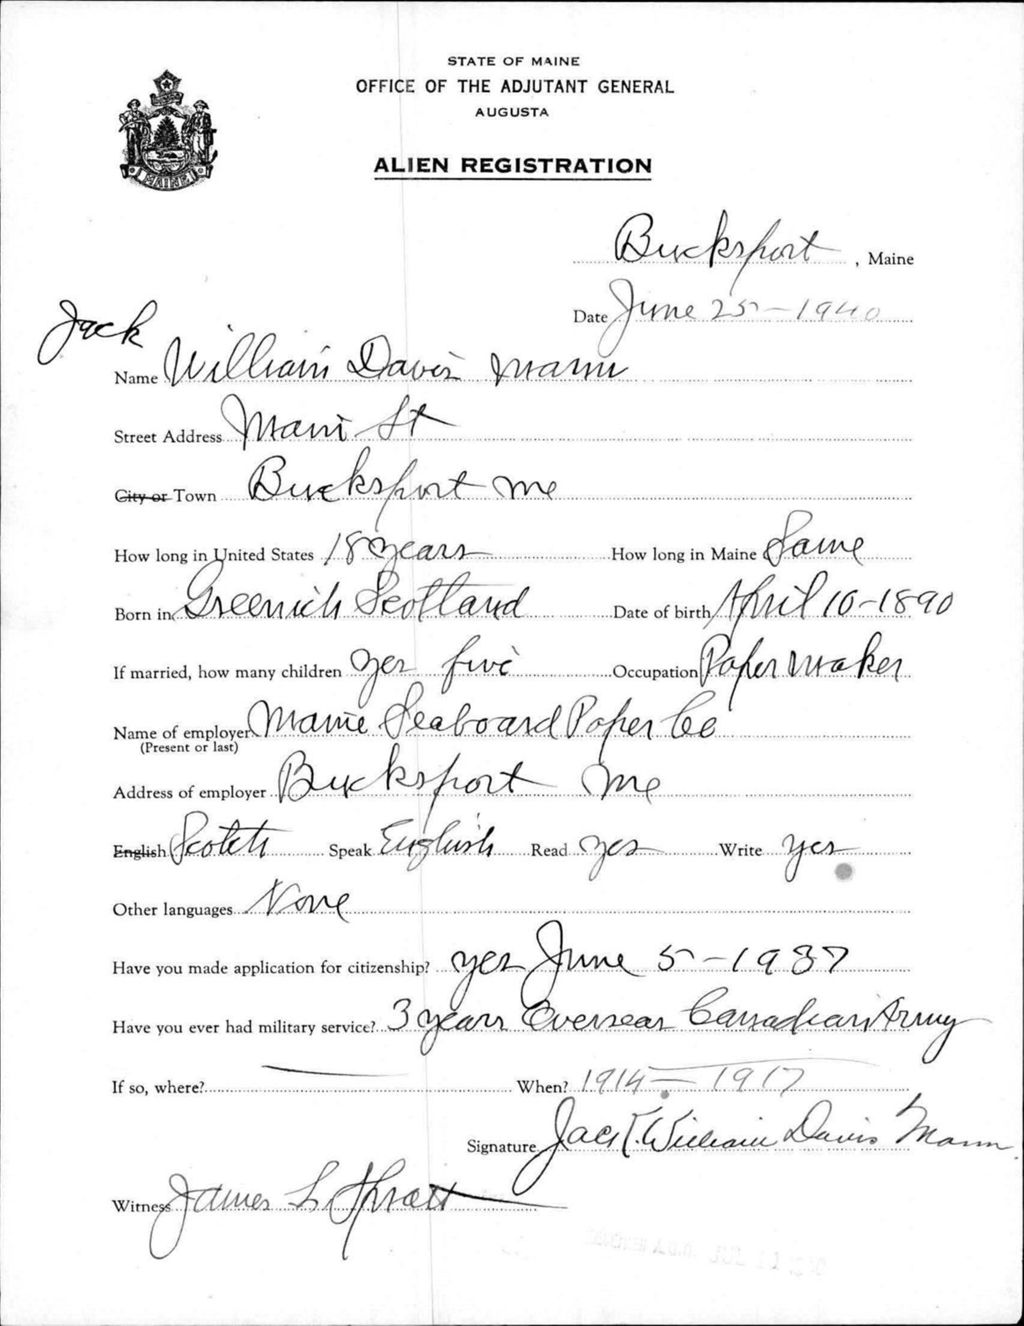 STATE OF MAINE
OFFICE OF THE ADJUTANT GENERAL
AUGUSTA
ALIEN REGISTRATION
MAINE
Bucksport, Maine
Date June 25-1940
Jack
Name William Davis Mann
Street Address Main St
City or Town Bucksport Me
How long in United States 18 years How long in Maine Same
Born in Greenich Scotland Date of birth April 10-1890
If married, how many children yes five Occupation Paper maker
Name of employer Maine Seaboard Paper Co
(Present or last)
Address of employer Bucksport Me
English Scotch Speak English Read yes Write yes
Other languages None
Have you made application for citizenship? yes June 5-1937
Have you ever had military service? 3 years Overseas Canadian Army
If so, where? When? 1914-1917
Signature Jack William Davis Mann
Witness James L Spratt